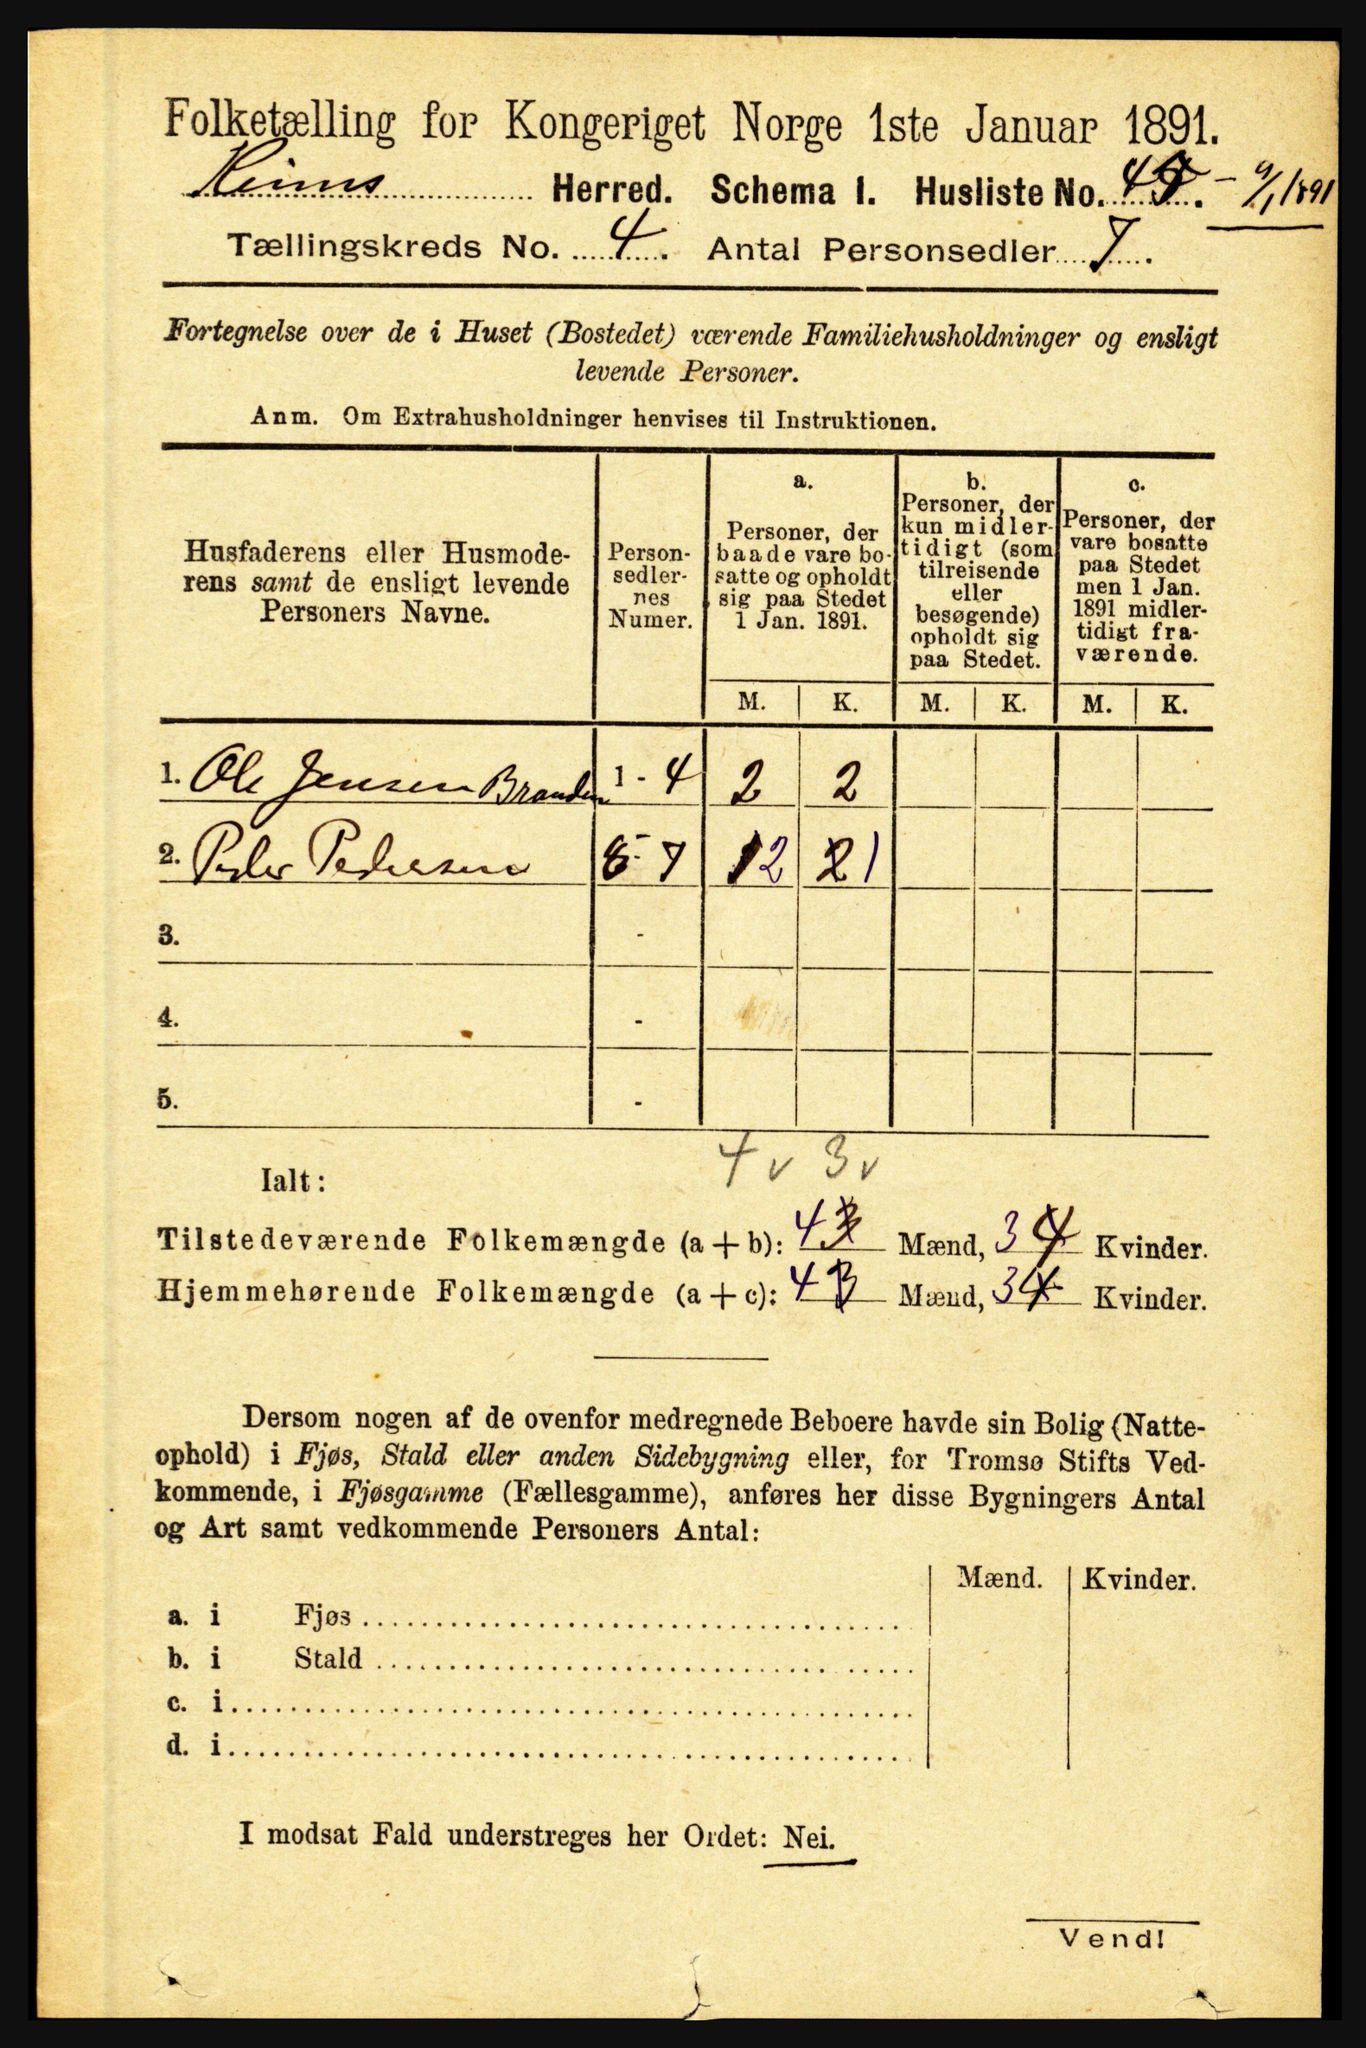 Folketælling for Kongeriget Norge 1ste Januar 1891.
Herred. Schema 1. Husliste No. 45. - 9/1 1891
Tællingskreds No. 4. Antal Personsedler 7.
Fortegnelse over de i Huset (Bostedet) værende Familiehusholdninger og ensligt
levende Personer.
Anm. Om Extrahusholdninger henvises til Instruktionen.
Husfaderens eller Husmode-
rens samt de ensligt levende
Personers Navne.
Person-
sedler-
nes
Numer.
a.
Personer, der
baade vare bo-
satte og opholdt
sig paa Stedet
1 Jan. 1891.
b.
Personer, der
kun midler-
tidigt (som
tilreisende
eller
besøgende)
opholdt sig
paa Stedet.
c.
Personer, der
vare bosatte
paa Stedet
men 1 Jan.
1891 midler-
tidigt fra-
værende.
M. K. M. K. M. K.
1. Ole Jensen 1 - 4 2 2
2. Peder Pedersen 5 - 7 12 21
3. -
4. -
5. -
4 v 3 v
Ialt:
Tilstedeværende Folkemængde (a + b): 43 Mænd, 34 Kvinder.
Hjemmehørende Folkemængde (a + c): 43 Mænd, 34 Kvinder.
Dersom nogen af de ovenfor medregnede Beboere havde sin Bolig (Natte-
ophold) i Fjøs, Stald eller anden Sidebygning eller, for Tromsø Stifts Ved-
kommende, i Fjøsgamme (Fællesgamme), anføres her disse Bygningers Antal
og Art samt vedkommende Personers Antal:
Mænd. Kvinder.
a. i Fjøs
b. i Stald
c. i
d. i
I modsat Fald understreges her Ordet: Nei.
Vend!